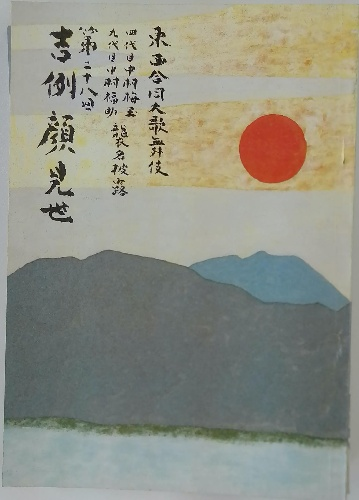 東西合同大歌舞伎
四代目中村梅玉
九代目中村福助
襲名披露
第二十八回
吉例顔見世